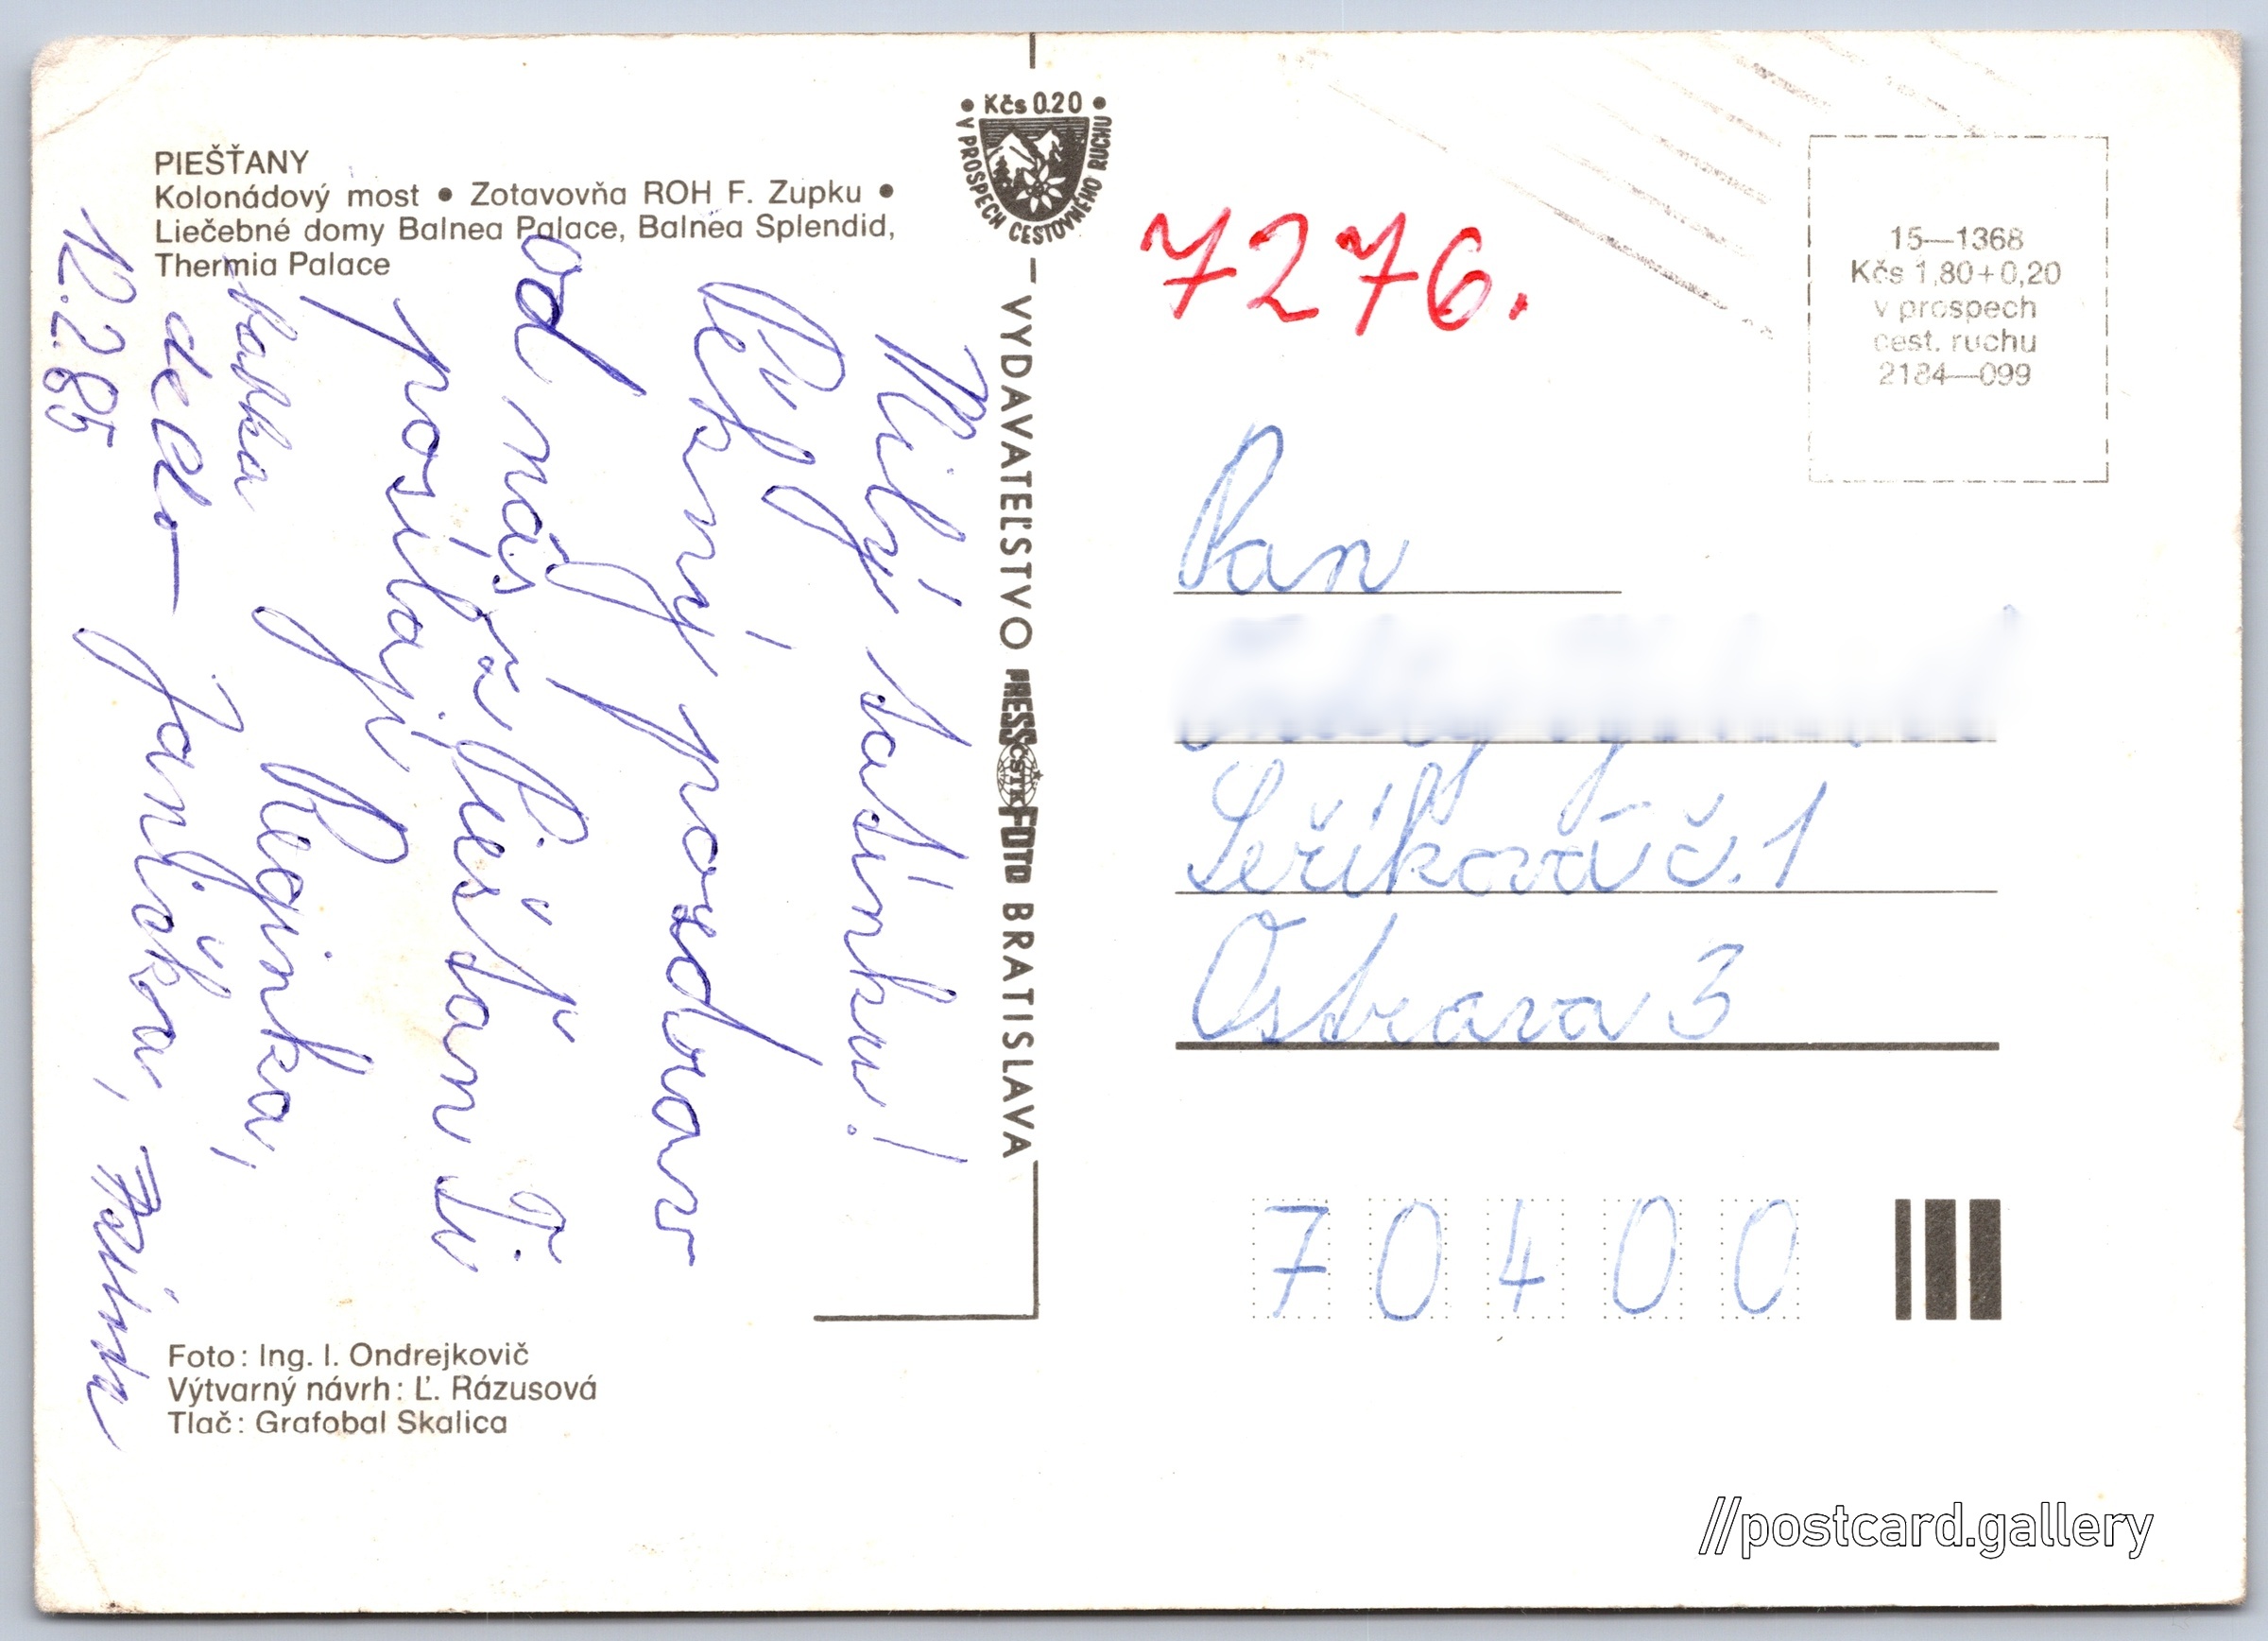 PIEŠŤANY
Kolonádový most • Zotavovňa ROH F. Zupku •
Liečebné domy Balnea Palace, Balnea Splendid,
Thermia Palace
Milý tatínku!
Pěkný pozdrav
od nás z Piešťan Ti
posílají
Reginka,
babka
dedo
Janička,
12.2.85
Foto: Ing. I. Ondrejkovič
Výtvarný návrh: Ľ. Rázusová
Tlač: Grafobal Skalica
• Kčs 0.20 •
V PROSPECH CESTOVNÉHO RUCHU
VYDAVATEĽSTVO PRESSFOTO BRATISLAVA
ČSTK
7276.
15—1368
Kčs 1,80+0,20
v prospech
cest. ruchu
2184—099
Pan
Šeříková č. 1
Ostrava 3
70400
//postcard.gallery